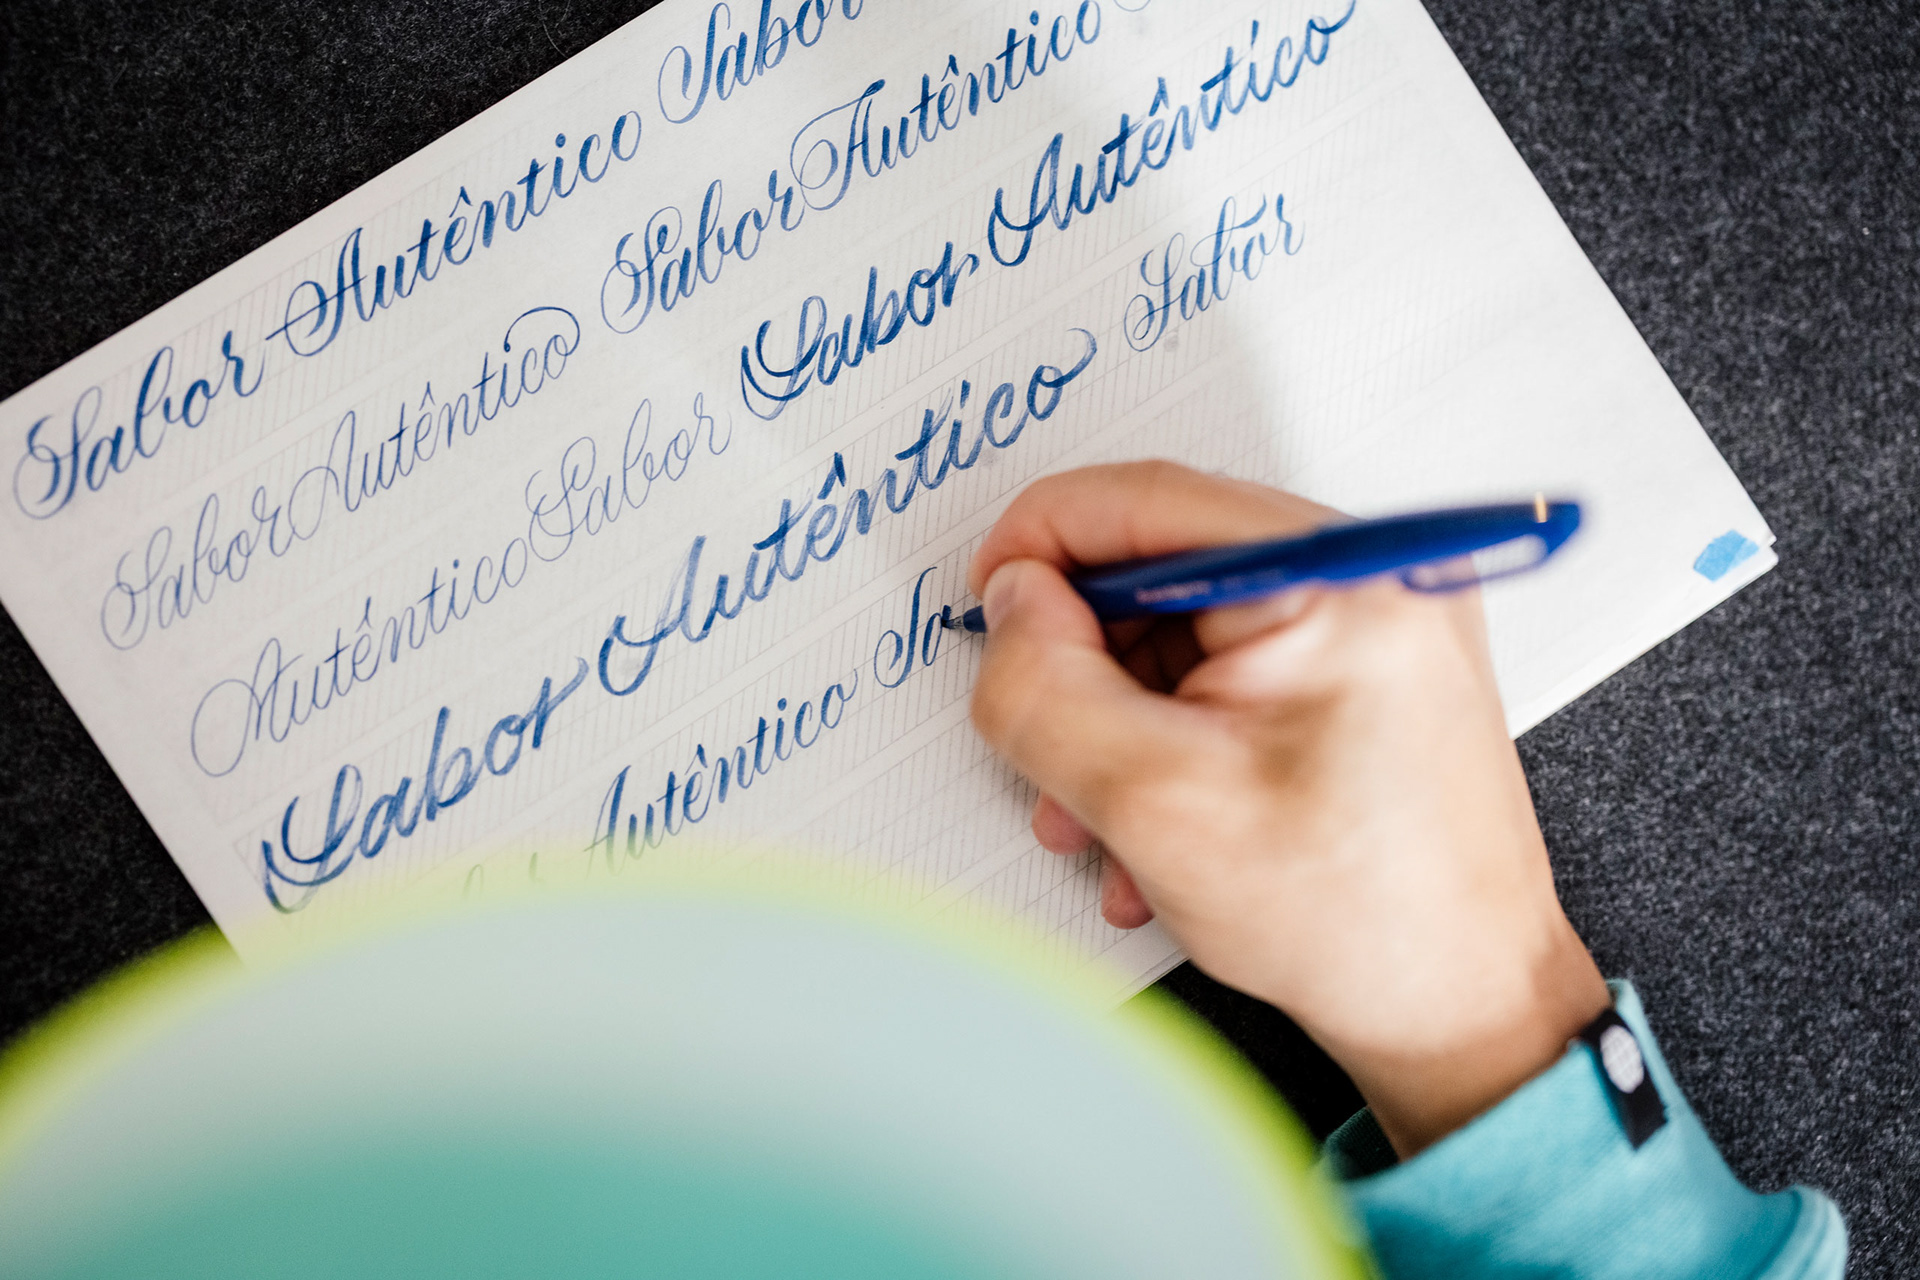 Sabor Autêntico Sabor
Sabor Autêntico Sabor Autêntico
Autêntico Sabor Sabor Autêntico
Sabor Autêntico Sabor
Autêntico Sa